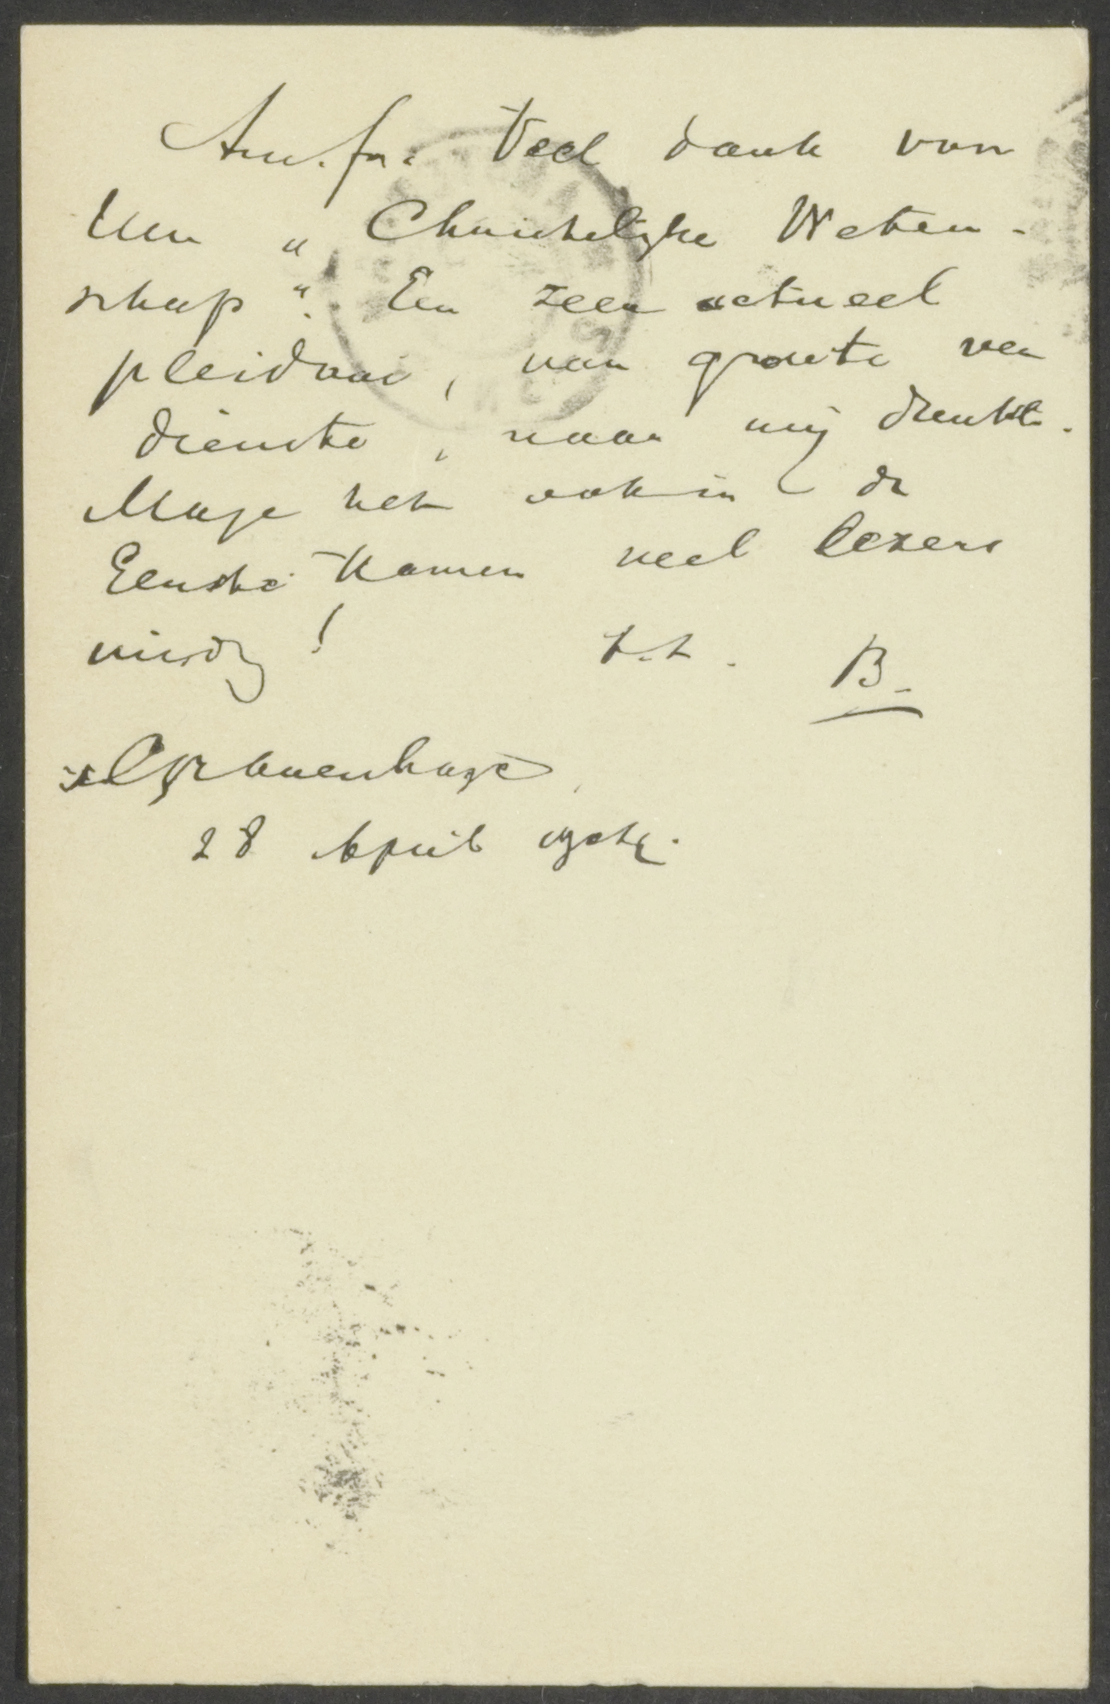 Am. fr. Veel dank voor
Uw „Christelijke Weten-
schap". Een zeer actueel
pleidooi, van groote ver
dienste, naar mij dunkt.
Moge het ook in de
Eerste Kamer veel lezers
vinden! t.t. B.
's Gravenhage,
28 April